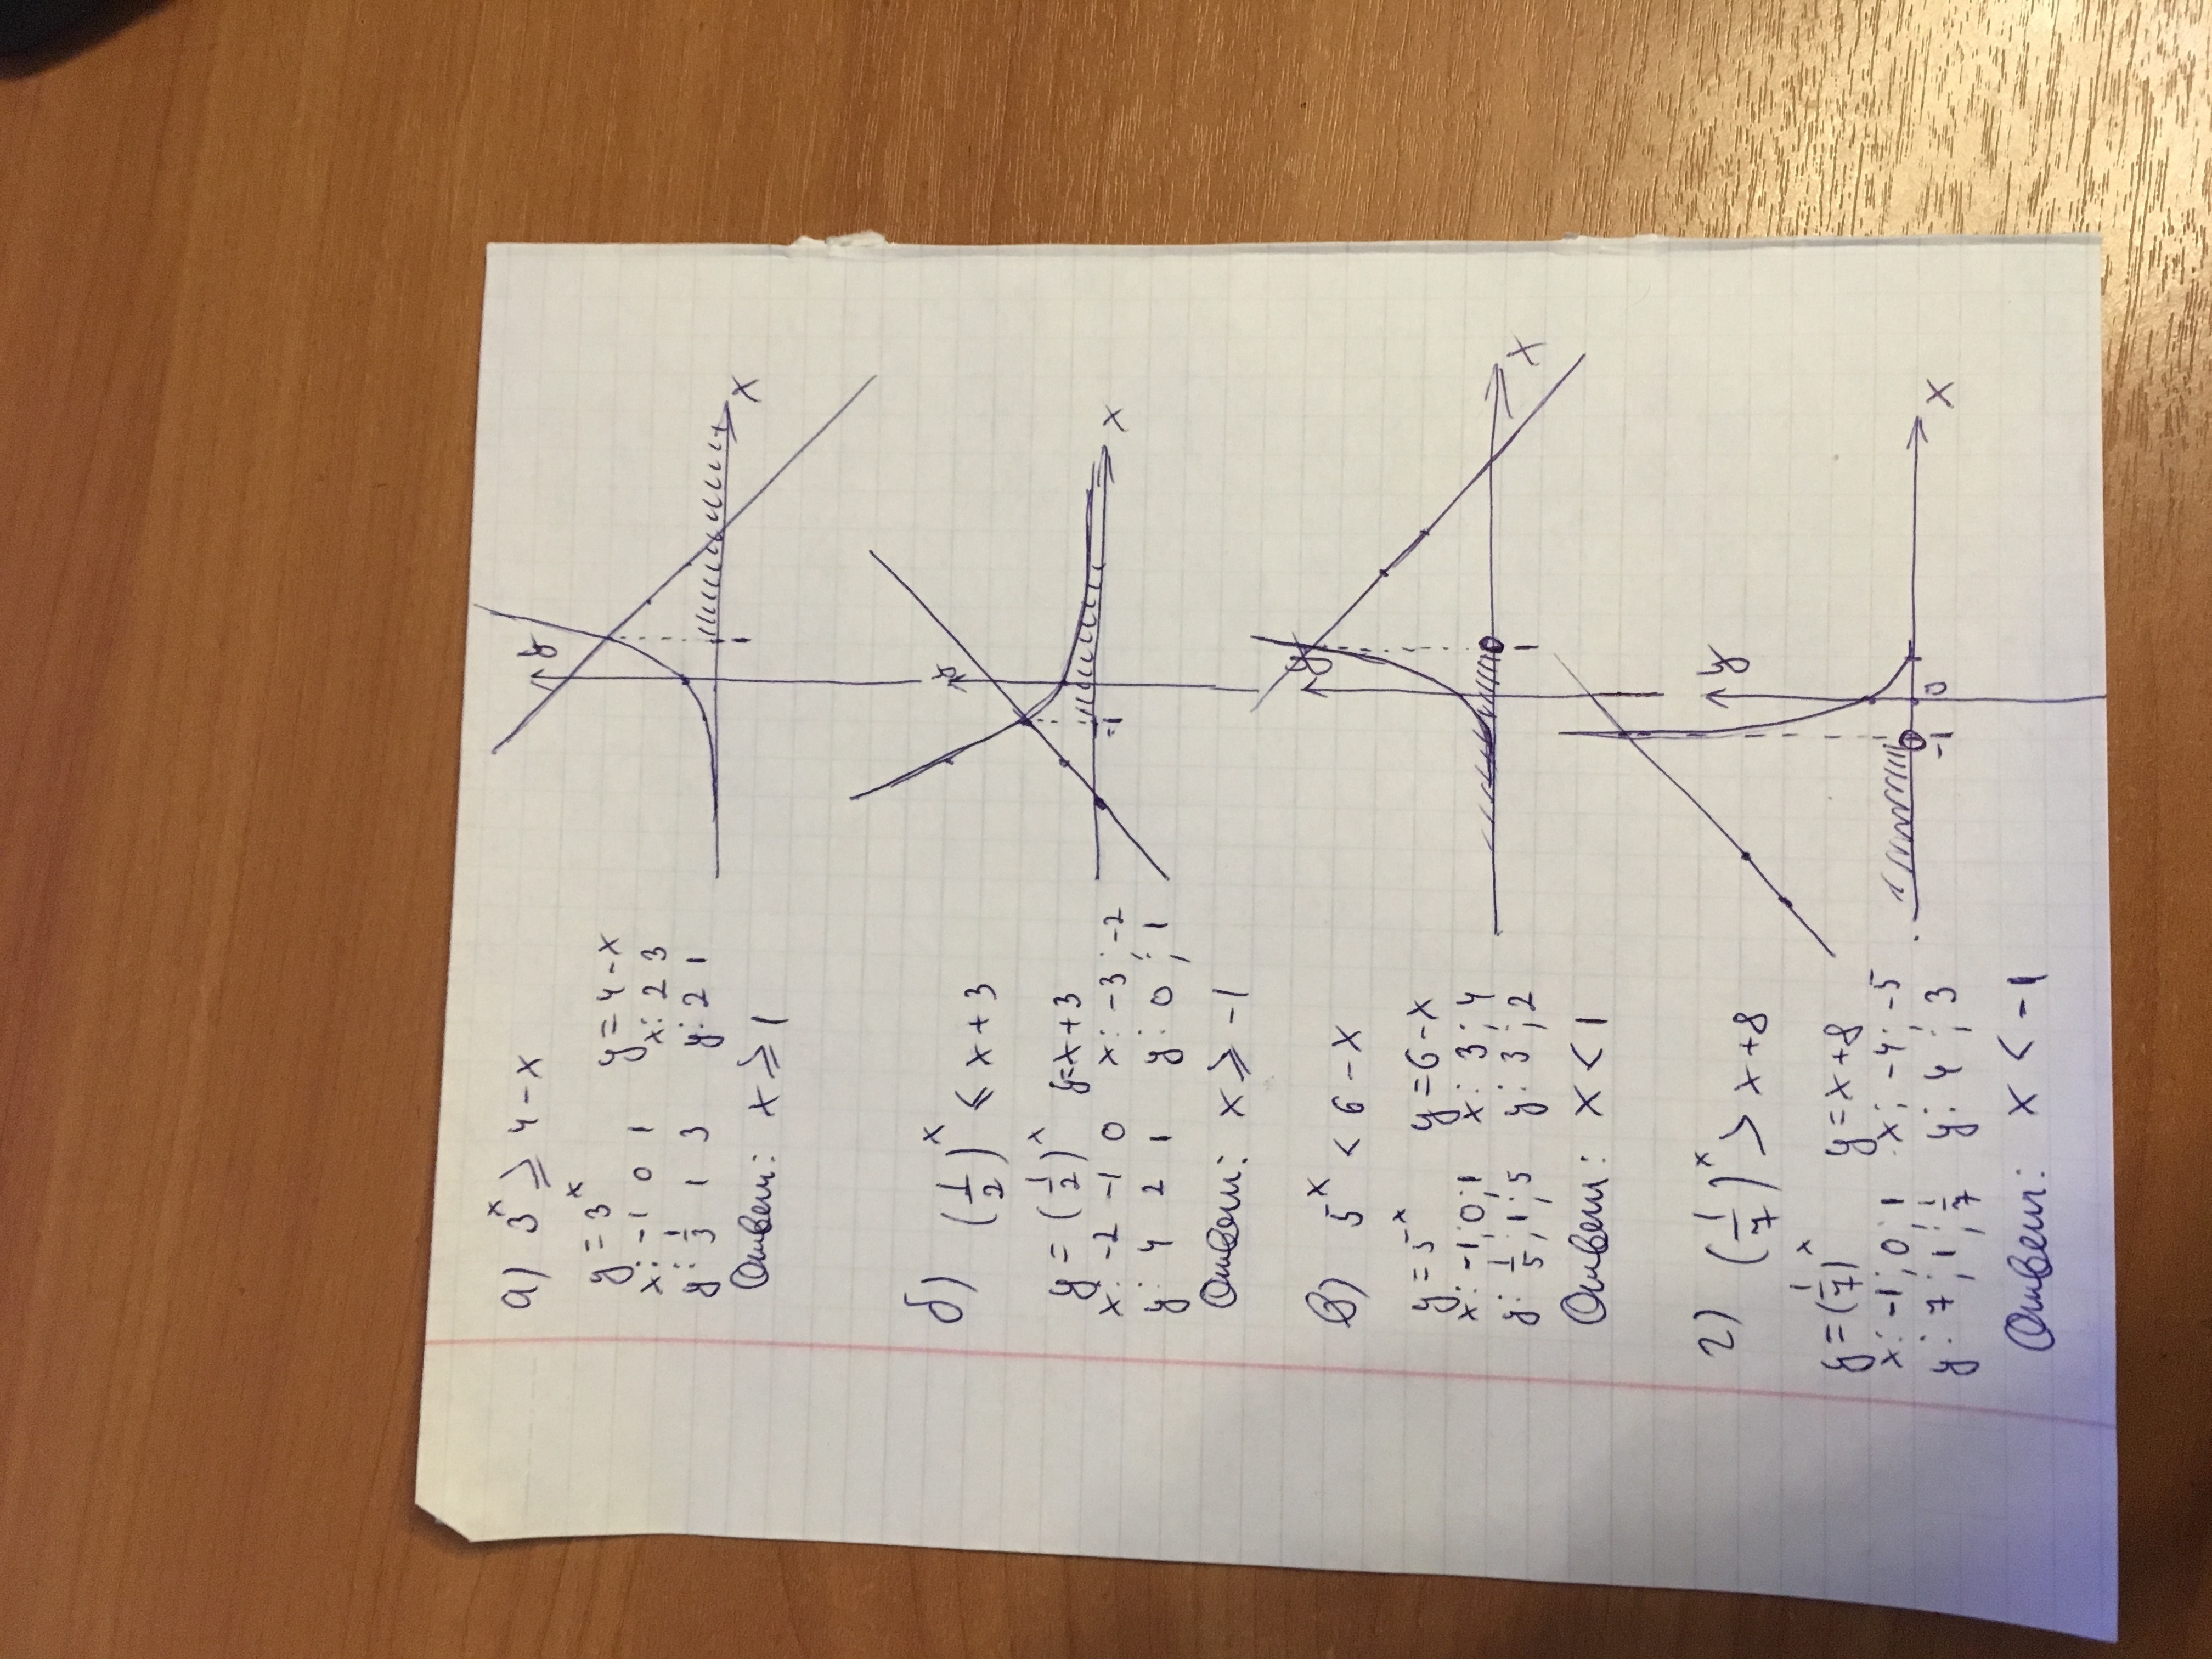 а) 3ˣ ⩾ 4-x
y
y=3ˣ y=4-x
x: -1 0 1 x: 2 3
y: 1/3 1 3 y: 2 1
1 x
Ответ: x ⩾ 1
б) (1/2)ˣ ⩽ x+3
y
y=(1/2)ˣ y=x+3
x: -2 -1 0 x: -3; -2
y: 4 2 1 y: 0; 1
-1 x
Ответ: x ⩾ -1
в) 5ˣ < 6-x
y
y=5ˣ y=6-x
x: -1; 0; 1 x: 3; 4
y: 1/5; 1; 5 y: 3; 2
1 x
Ответ: x < 1
г) (1/7)ˣ > x+8
y
y=(1/7)ˣ y=x+8
x: -1; 0; 1 x: -4; -5
y: 7; 1; 1/7 y: 4; 3
-1 0 x
Ответ: x < -1